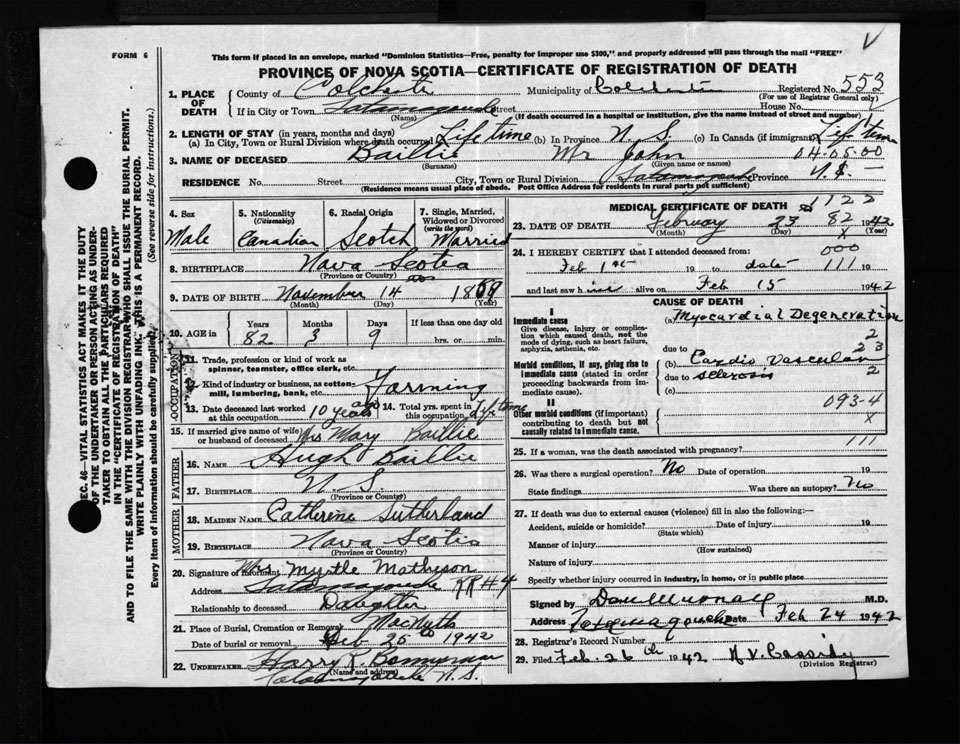 FORM 6
This form if placed in an envelope, marked "Dominion Statistics—Free, penalty for improper use $300," and properly addressed will pass through the mail "FREE"
PROVINCE OF NOVA SCOTIA—CERTIFICATE OF REGISTRATION OF DEATH
1. PLACE OF DEATH
County of Colchester Municipality of Colchester Registered No. 553
(For use of Registrar General only)
If in City or Town Tatamagouche Street House No.
(Name) (If death occurred in a hospital or institution, give the name instead of street and number)
2. LENGTH OF STAY (in years, months and days)
(a) In City, Town or Rural Division where death occurred Life time (b) In Province N. S. (c) In Canada (if immigrant) Life time
3. NAME OF DECEASED Baillie Mr John 04.05.00
(Surname) (Given name or names)
RESIDENCE No. Street City, Town or Rural Division Tatamagouche Province N.S.
(Residence means usual place of abode. Post Office Address for residents in rural parts not sufficient)
4. Sex
Male
5. Nationality
(Citizenship)
Canadian
6. Racial Origin
Scotch
7. Single, Married, Widowed or Divorced
(write the word)
Married
8. BIRTHPLACE Nova Scotia
(Province or Country)
9. DATE OF BIRTH November 14 1859
(Month) (Day) (Year)
10. AGE in Years Months Days If less than one day old
82 3 9 hrs. or min.
OCCUPATION
11. Trade, profession or kind of work as spinner, teamster, office clerk, etc.
12. Kind of industry or business, as cotton-mill, lumbering, bank, etc. Farming
13. Date deceased last worked at this occupation 10 years ago 14. Total yrs. spent in this occupation Life time
15. If married give name of wife or husband of deceased Mrs Mary Baillie
FATHER
16. NAME Hugh Baillie
17. BIRTHPLACE N. S.
(Province or Country)
MOTHER
18. MAIDEN NAME Catherine Sutherland
19. BIRTHPLACE Nova Scotia
(Province or Country)
20. Signature of informant Mrs Myrtle Matheson
Address Tatamagouche RR # 4
Relationship to deceased Daughter
21. Place of Burial, Cremation or Removal
Date of burial or removal Feb 25th 1942
22. UNDERTAKER Harry K. Bonnyman
(Name and address)
Tatamagouche N. S.
MEDICAL CERTIFICATE OF DEATH 1122
23. DATE OF DEATH February 23 82 1942
(Month) (Day) (Year)
24. I HEREBY CERTIFY that I attended deceased from: 000
Feb 1st 19 to date 111 19
and last saw him alive on Feb 15 1942
CAUSE OF DEATH
I
Immediate cause (a) Myocardial Degeneration
Give disease, injury or complication which caused death, not the mode of dying, such as heart failure, asphyxia, asthenia, etc.
due to
Morbid conditions, if any, giving rise to immediate cause (stated in order proceeding backwards from immediate cause).
(b) Cardio Vascular
due to sclerosis
(c)
II
Other morbid conditions (if important) contributing to death but not causally related to immediate cause.
093-4
X
25. If a woman, was the death associated with pregnancy? 111
26. Was there a surgical operation? No Date of operation 19
State findings Was there an autopsy? No
27. If death was due to external causes (violence) fill in also the following:—
Accident, suicide or homicide? Date of injury 19
(State which)
Manner of injury
(How sustained)
Nature of injury
Specify whether injury occurred in industry, in home, or in public place
Signed by M.D.
Address Tatamagouche Date Feb 24 1942
28. Registrar's Record Number
29. Filed Feb. 26th 1942 H V. Cassidy
(Division Registrar)
SEC. 46—VITAL STATISTICS ACT MAKES IT THE DUTY
OF THE UNDERTAKER OR PERSON ACTING AS UNDER-
TAKER TO OBTAIN ALL THE PARTICULARS REQUIRED
IN THE "CERTIFICATE OF REGISTRATION OF DEATH"
AND TO FILE THE SAME WITH THE DIVISION REGISTRAR WHO SHALL ISSUE THE BURIAL PERMIT.
WRITE PLAINLY WITH UNFADING INK. THIS IS A PERMANENT RECORD.
Every item of information should be carefully supplied. (See reverse side for instructions.)